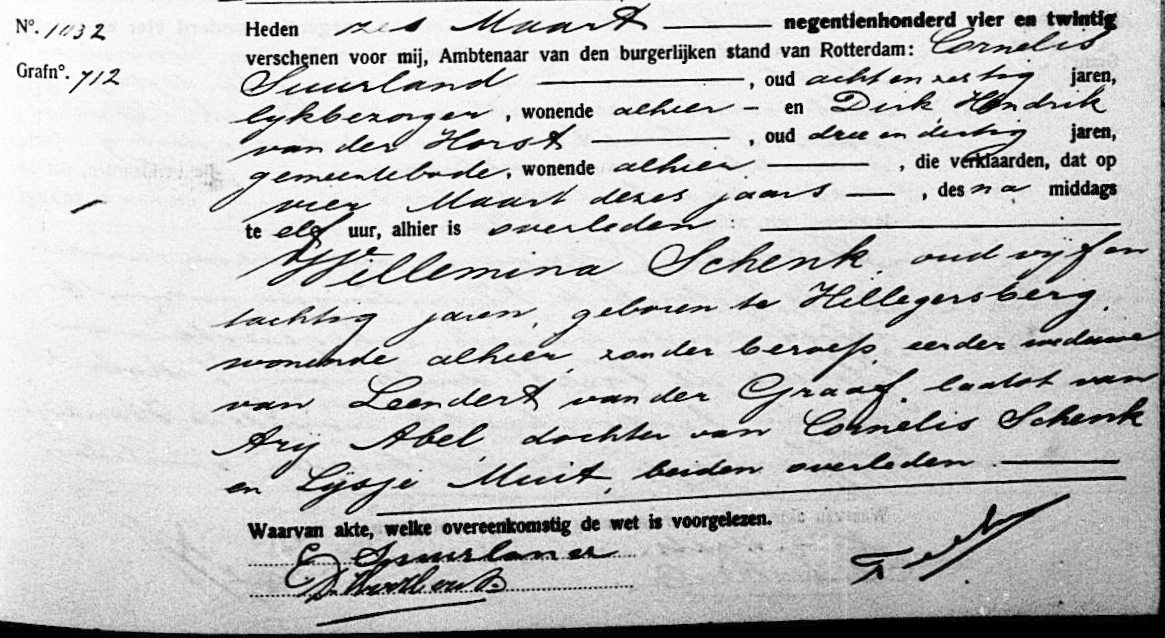 Nº. 1032
Grafnº. 712
Heden zes Maart negentienhonderd vier en twintig
verschenen voor mij, Ambtenaar van den burgerlijken stand van Rotterdam: Cornelis
Suurland , oud acht en zestig jaren,
lijkbezorger , wonende alhier – en Dirk Hendrik
van der Horst , oud drie en dertig jaren,
gemeentebode, wonende alhier , die verklaarden, dat op
vier Maart dezes jaars , des na middags
te elf uur, alhier is overleden
Willemina Schenk, oud vijf en
tachtig jaren, geboren te Hillegersberg,
wonende alhier, zonder beroep, eerder weduwe
van Leendert van der Graaf, laatst van
Arij Abel, dochter van Cornelis Schenk
en Lijsje Muit, beiden overleden
Waarvan akte, welke overeenkomstig de wet is voorgelezen.
C Suurland